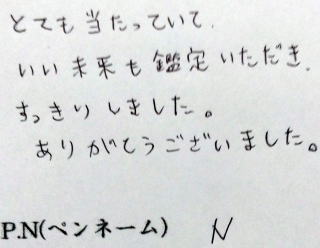 とても当たっていて、
いい未来も鑑定いただき、
すっきりしました。
ありがとうございました。
P.N(ペンネーム) N